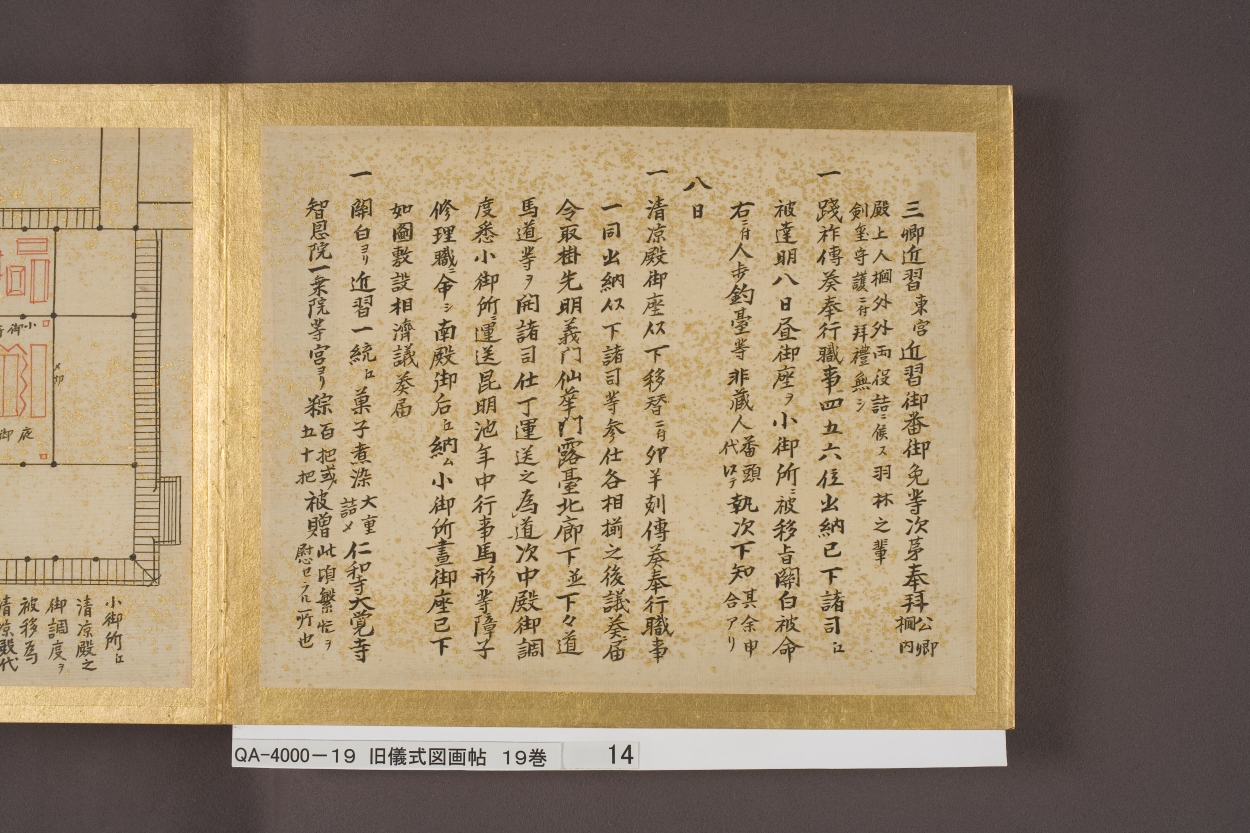 三卿近習東宮近習御番御免等次第奉拜公卿棡内
殿上人棡外外両役詰ニ候ス羽林之輩
剣璽守護ニ付拜禮無シ
一 踐祚傳奏奉行職事四五六位出納已下諸司江
被達明八日昼御座ヲ小御所ニ被移旨關白被命
右ニ付人歩釣臺等非蔵人番頭代江テ執次下知其余申合アリ
八日
一 清凉殿御座以下移替ニ付卯半刻傳奏奉行職事
一同出納以下諸司等参仕各相揃之後議奏届
令取掛先明義門仙華門露臺北廊下並下々道
馬道等ヲ開諸司仕丁運送之為道次中殿御調
度悉小御所ニ運送昆明池年中行事馬形等障子
修理職ニ命シ南殿御后江納ム小御所晝御座已下
如圖敷設相濟議奏届
一 關白ヨリ近習一統江菓子煮染大重詰メ仁和寺大覚寺
智恩院一乗院等宮ヨリ粽百把或五十把被贈此頃繁忙ヲ慰セラル所也
小御所江
清凉殿之
御調度ヲ
被移為
清凉殿代
QA-4000-19 旧儀式図画帖 19巻 14